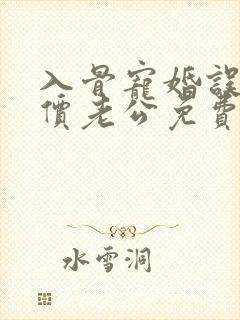 入骨寵婚誤
價老公免費
水雪洞